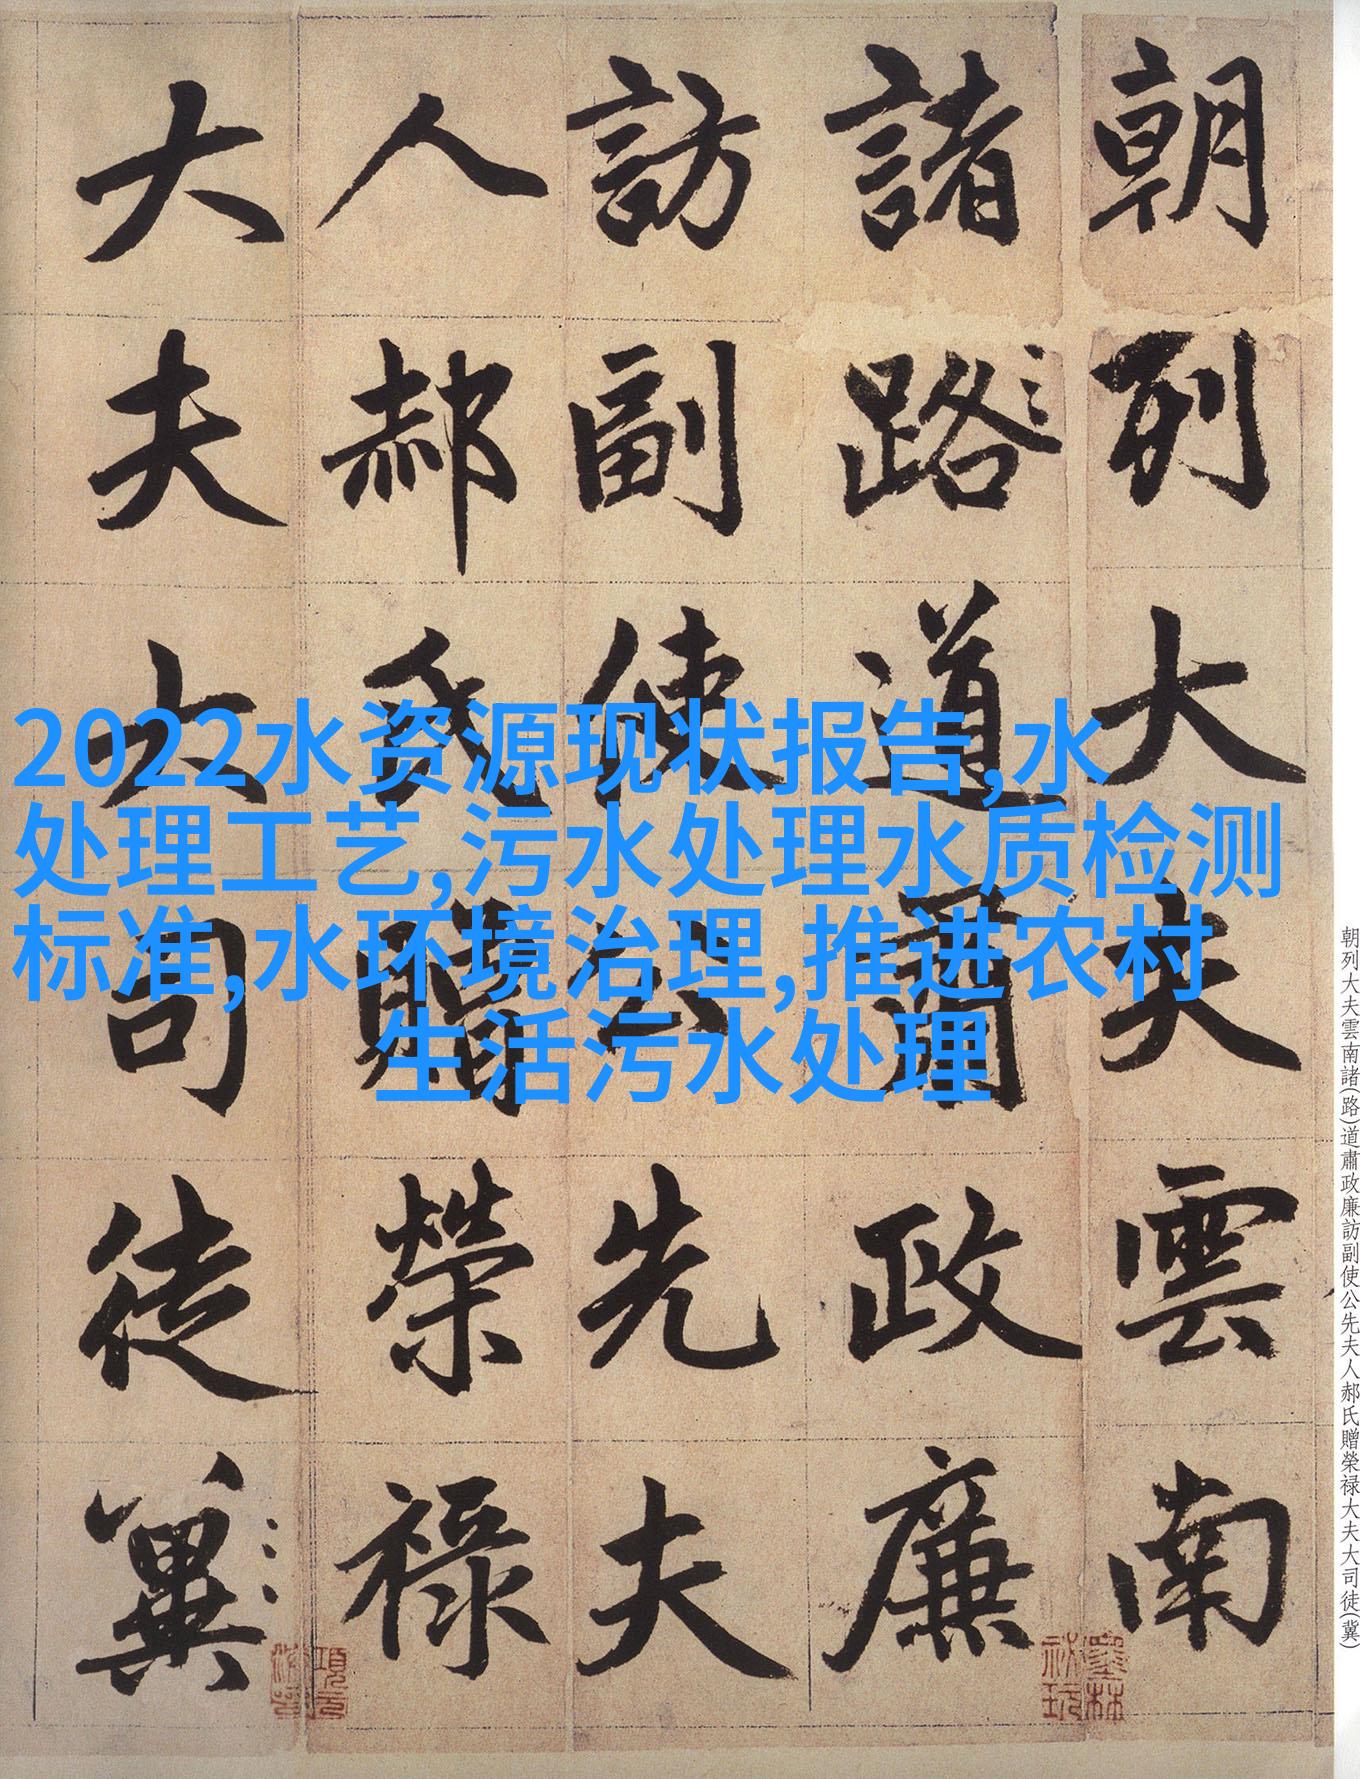 朝列大夫雲南
諸路道肅政廉
訪副使公先夫
人郝氏贈榮禄
大夫大司徒冀
2022水资源现状报告,水
处理工艺,污水处理水质检测
标准,水环境治理,推进农村
生活污水处理
朝列大夫雲南諸(路)道肅政廉訪副使公先夫人郝氏贈榮禄大夫大司徒(冀)
墨林祕玩
項元汴印